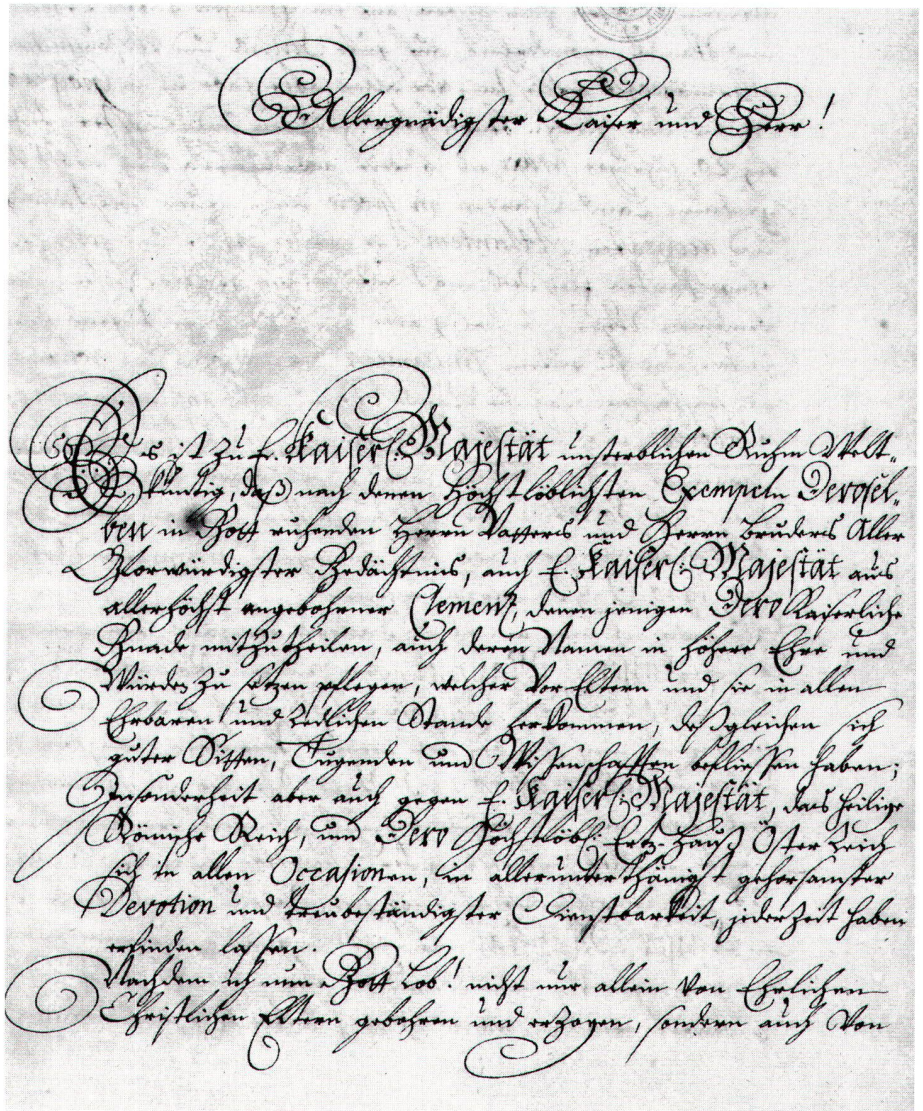 Allergnädigster Kaiser und Herr!
Es ist zu E. Kaiserl: Majestät unsterblichen Ruhm Welt-
kündig, daß nach denen Höchstlöblichsten Exempeln Derosel-
ben in Gott ruhenden Herrn Vatters und Herrn Bruders Aller
Glorwürdigster Gedächtnis, auch E. Kaiserl: Majestät aus
allerhöchst angebohrner Clemenz, denen jenigen Dero Kaiserliche
Gnade mitzutheilen, auch deren Namen in höhere Ehre und
Würden zu setzen pflegen, welcher Vor Eltern und sie in allen
Ehrbaren und Redlichen Stande herkommen, deßgleichen sich
guter Sitten, Tugenden und Wissenschafften befliessen haben;
Insonderheit aber auch gegen E. Kaiserl: Majestät, das Heilige
Römische Reich, und Dero Höchstlöbl: Ertz-Hauß Österreich
sich in allen Occasionen, in allerunterthänigst gehorsamster
Devotion und treubeständigster Dienstbarkeit, jederzeit haben
erfinden lassen.
Nachdem ich nun Gott Lob! nicht nur allein von Ehrlichen
Christlichen Eltern gebohren und erzogen, sondern auch von